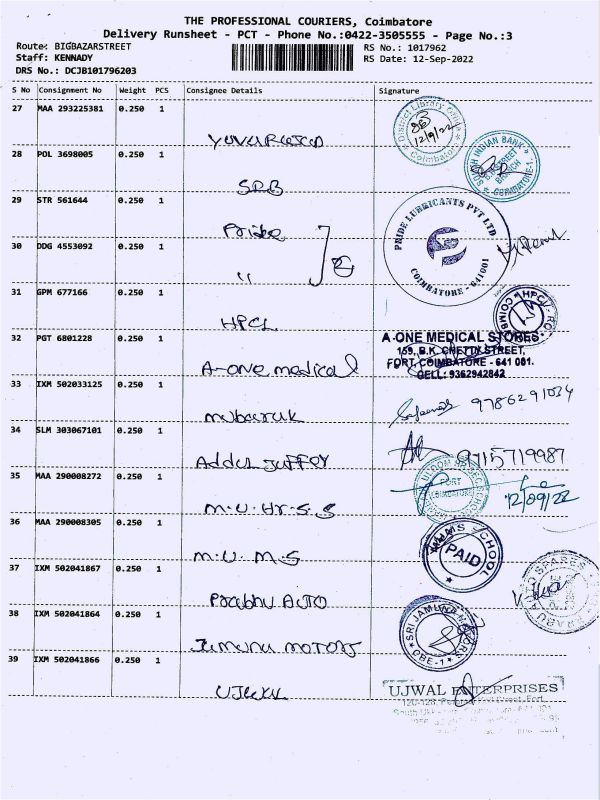 THE PROFESSIONAL COURIERS, Coimbatore
Delivery Runsheet - PCT - Phone No.:0422-3505555 - Page No.:3
Route: BIGBAZARSTREET
RS No.: 1017962
Staff: KENNADY
RS Date: 12-Sep-2022
DRS No.: DCJB101796203
S No Consignment No Weight PCS Consignee Details Signature
27 MAA 293225381 0.250 1
District Library
Coimbatore
12/9/22
28 POL 3698005 0.250 1
SRB
SOUTH INDIAN BANK
COIMBATORE-1
29 STR 561644 0.250 1
Pride
PRIDE LUBRICANTS PVT LTD
COIMBATORE - 641001
30 DDG 4553092 0.250 1
"
31 GPM 677166 0.250 1
HPCL
32 PGT 6801228 0.250 1
A-one medical
A-ONE MEDICAL STORES
159, B.K. CHETTY STREET,
FORT, COIMBATORE - 641 001.
CELL: 9362942842
33 IXM 502033125 0.250 1
mubaruk
9786291034
34 SLM 303067101 0.250 1
Addul Juffer
9715719987
35 MAA 290008272 0.250 1
M.U.Hr.S.S
FORT
COIMBATORE
12/09/22
36 MAA 290008305 0.250 1
M.U.M.S
SCHOOL
PAID
37 IXM 502041867 0.250 1
Prabhu Auto
38 IXM 502041864 0.250 1
Jamuna motors
SRI JAMUNA
CBE-1
39 IXM 502041866 0.250 1
UJWAL ENTERPRISES